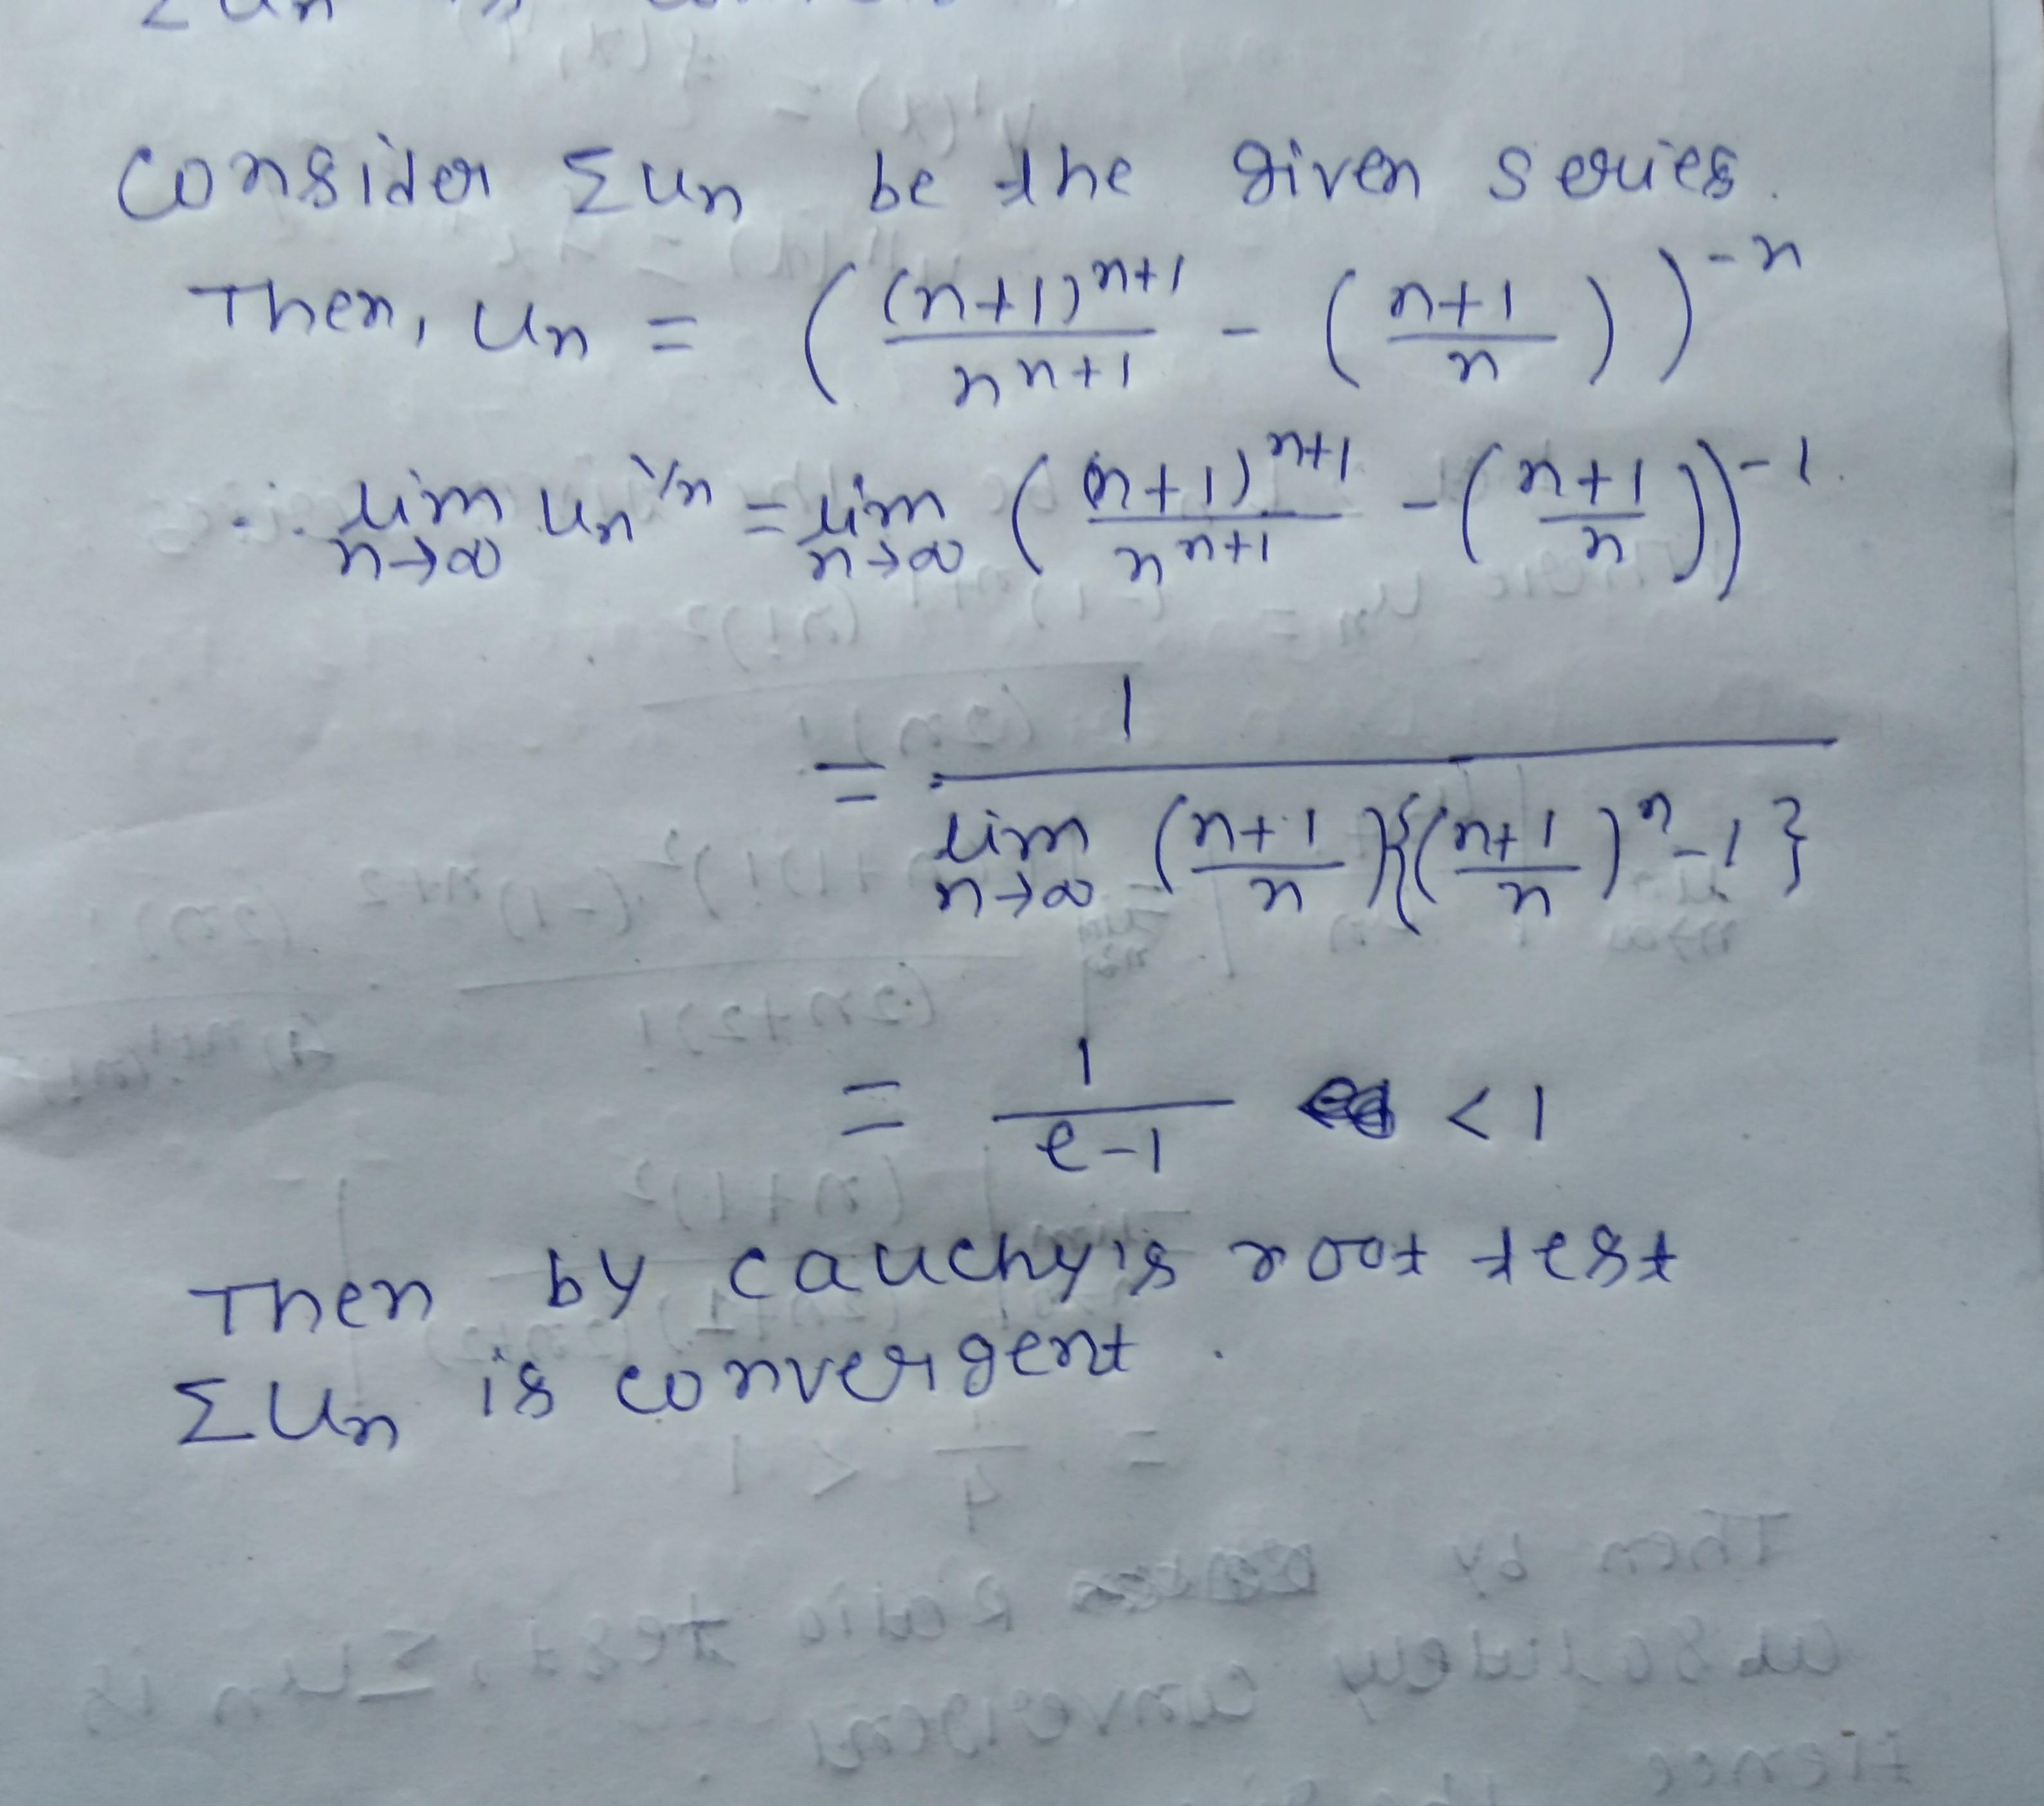 Consider Σun be the given series.
Then, Un = ( (n+1)^{n+1} / n^{n+1} - ( n+1 / n ) )^{-n}
∴ lim n→∞ Un^{1/n} = lim n→∞ ( (n+1)^{n+1} / n^{n+1} - ( n+1 / n ) )^{-1}
= 1 / lim n→∞ ( n+1 / n ) { ( n+1 / n )^n - 1 }
= 1 / e-1 < 1
Then by cauchy's root test
ΣUn is convergent.